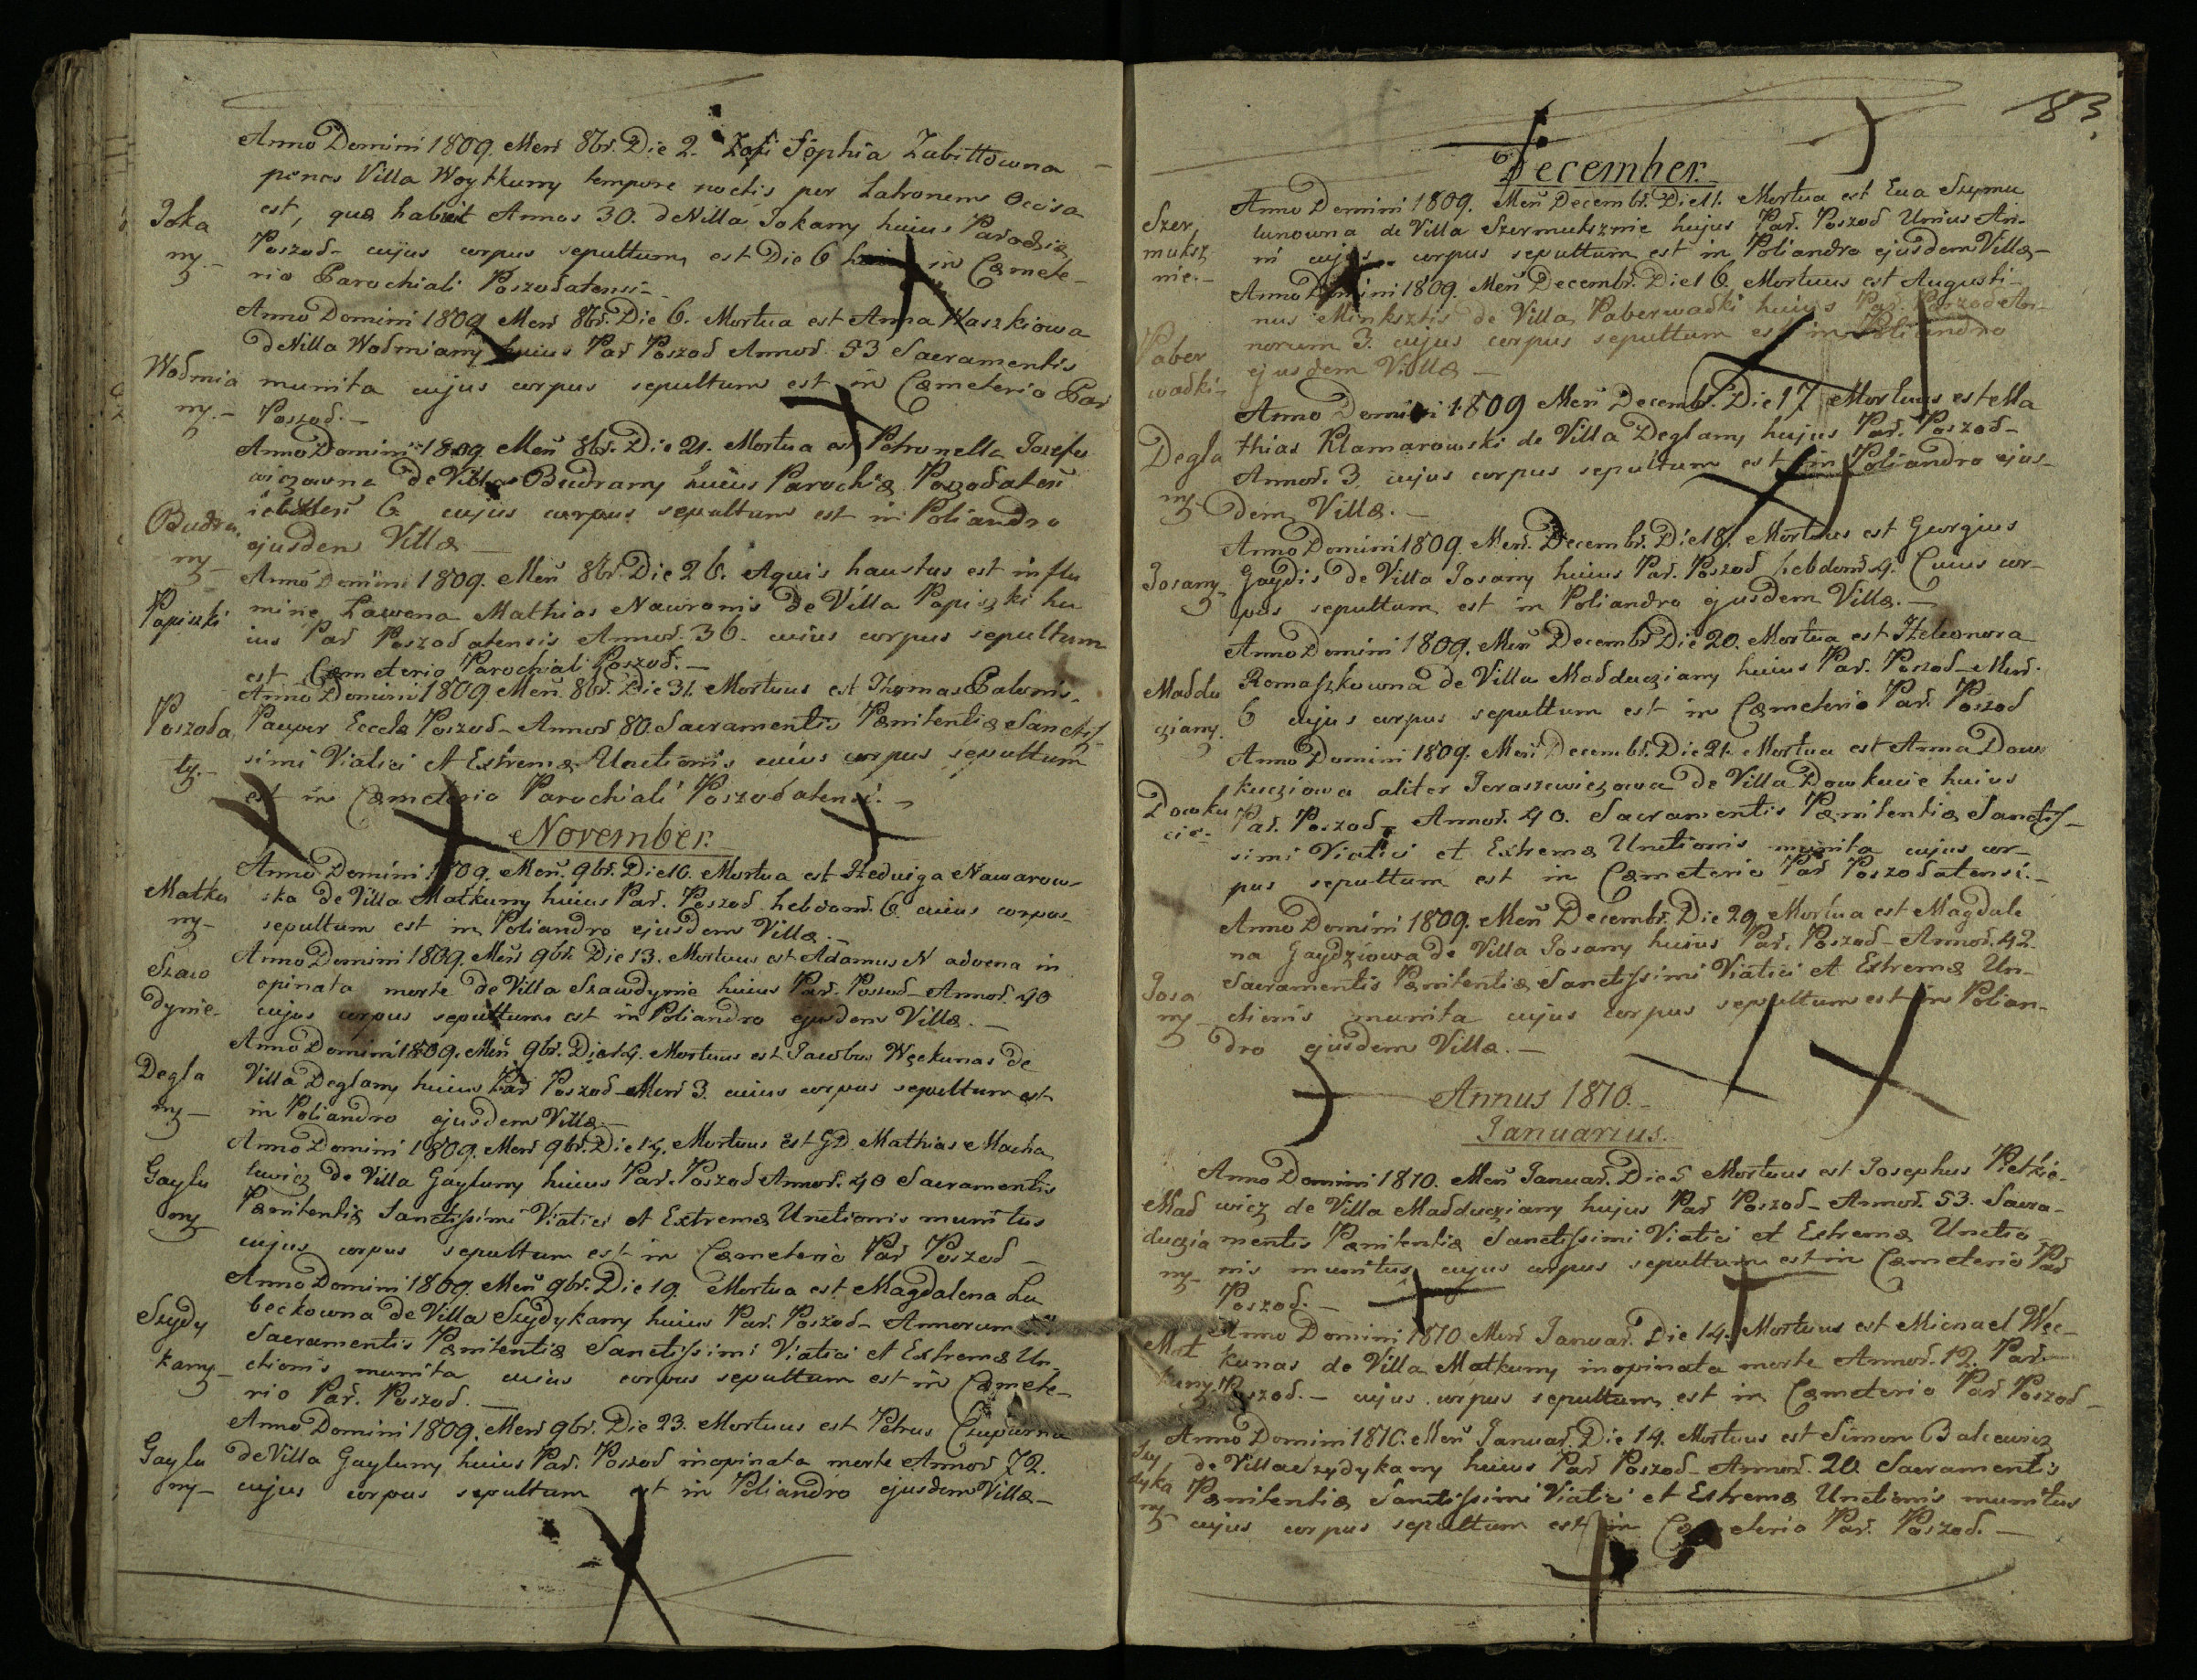 Anno Domini 1809. Men̄ 8br. Die 2. Sophia Zubittowna
penes Villa Woytkuny tempore noctis per Latronem Occisa
Joka est, quæ habuit Annos 30. de Villa Jokany huius Parochiæ
ny.- Poszod- cujus corpus sepultum est Die 6 in Cæmete-
rio Parochiali Poszodatensi-
Anno Domini 1809 Men̄ 8br. Die 6. Mortua est Anna Waszkiowa
de Villa Wodmiany huius Par Poszod Annor. 53 Sacramentis
Wodmia munita cujus corpus sepultum est in Cæmeterio Par
ny.- Poszod.-
Anno Domini 1809. Men̄ 8br. Die 21. Mortua est Petronella Jozefo
wiczowna De Villa Budrany huius Parochiæ Poszodaten̄
Budra 6 cujus corpus sepultum est in Poliandro
ny- ejusdem Villæ-
Anno Domini 1809. Men̄ 8br. Die 26. Aquis haustus est in flu
Papiszki mine Lawena Mathias Nawronis de Villa Papiszki hu
ius Par Poszodatensis Annor. 36. cuius corpus sepultum
est Cæmeterio Parochiali Poszod.-
Anno Domini 1809 Men̄. 8br. Die 31. Mortuus est Thomas Balonis-
Poszoda Pauper Eccelæ Poszod- Annor 80. Sacramentis Pænitentiæ Sanctis
ty.- simi Viatici Et Extremæ Unctionis cuius corpus sepultum
est in Cæmeterio Parochiali Poszodatensi.-
November.
Anno Domini 1809. Men̄. 9br. Die 10. Mortua est Hedviga Nawarow-
Matku ska de Villa Matkuny huius Par. Poszod hebdom. 6. cuius corpus
ny- sepultum est in Poliandro ejusdem Villæ.-
Anno Domini 1809. Men̄ 9br. Die 13. Mortuus est Adamus N advena in
Szaw opinata morte de Villa Szawdynie huius Par. Poszod- Annor. 40
dynie- cujus corpus sepultum est in Poliandro ejusdem Villæ.-
Anno Domini 1809. Men̄ 9br. Die 14. Mortuus est Jacobus Węckunas De
Degla Villa Deglany huius Par Poszod- Men̄ 3. cuius corpus sepultum est
ny- in Poliandro ejusdem Villæ-
Anno Domini 1809. Men̄ 9br. Die 14. Mortuus est GD Mathias Macha
Gaylu lewicz de Villa Gayluny huius Par. Poszod Annor. 40 Sacramentis
ny Pænitentiæ Sanctissimi Viatici et Extremæ Unctionis munitus
cujus corpus sepultum est in Cæmeterio Par Poszod-
Anno Domini 1809. Men̄ 9br. Die 19. Mortua est Magdalena Lu
Szydy beckowna de Villa Szydykany huius Par. Poszod- Annorum
kany- Sacramentis Pænitentiæ Sanctissimi Viatici et Extremæ Un-
ctionis munita cuius corpus sepultum est in Cæmete-
rio Par. Poszod.-
Anno Domini 1809. Men̄ 9br. Die 23. Mortuus est Petrus Czupurna
Gaylu de Villa Gayluny huius Par. Poszod inopinata morte Annor 72.
ny- cujus corpus sepultum est in Poliandro ejusdem Villæ-
83.
December.
Anno Domini 1809. Men̄ Decembr. Die 11. Mortua est Eua Szymu
Szer lunowna de Villa Szermuksznie hujus Par. Poszod Unius An-
muksz ni cujus corpus sepultum est in Poliandro ejusdem Villæ-
nie.- Anno Domini 1809. Men̄ Decembr. Die 16. Mortuus est Augusti-
nus Minksztis de Villa Paberwadki huius Par. Poszod An-
Paber norum 3. cujus corpus sepultum est in Poliandro
wadki- ejusdem Villæ-
Anno Domini 1809 Men̄ Decembr. Die 17 Mortuus est Ma
Degla thias Klamarowski de Villa Deglany hujus Par. Poszod-
Annor. 3. cujus corpus sepultum est in Poliandro ejus-
ny- dem Villæ.-
Anno Domini 1809. Men̄. Decembr. Die 18. Mortuus est Georgius
Josany- Gaydis de Villa Josany huius Par. Poszod hebdom̄ 4. Cuius cor-
pus sepultum est in Poliandro ejusdem Villæ.-
Anno Domini 1809. Men̄ Decembr Die 20. Mortua est Heleonora
Maddu Romaszkowna de Villa Madducziany huius Par. Poszod- Men̄.
cziany. 6 cujus corpus sepultum est in Cæmeterio Par. Poszod
Anno Domini 1809. Men̄ Decembr. Die 21. Mortua est Anna Dow
kucziowa aliter Jeraszewiczowa de Villa Dowkucie huius
Dowku Par. Poszod- Annor. 40. Sacramentis Pænitentiæ Sanctis-
cie- simi Viatici et Extremæ Unctionis munita cujus cor-
pus sepultum est in Cæmeterio Par Poszodatensi.-
Anno Domini 1809. Men̄ Decembr. Die 29. Mortua est Magdale
na Gaydziowa de Villa Josany huius Par. Poszod- Annor. 42.
Sacramentis Pænitentiæ Sanctissimi Viatici et Extremæ Un-
Josa ctionis munita cujus corpus sepultum est in Polian-
ny- dro ejusdem Villæ.-
Annus 1810.-
Januarius.-
Anno Domini 1810. Men̄ Januar. Die Mortuus est Josephus Pietkie-
Mad wicz de Villa Madducziany hujus Par Poszod- Annor. 53. Sacra-
duczia mentis Pænitentiæ Sanctissimi Viatici et Extremæ Unctio
ny- nis munitus cujus corpus sepultum est in Cæmeterio Par
Poszod.-
Anno Domini 1810 Men̄ Januar. Die 14. Mortuus est Michael Węc-
Mat kunas de Villa Matkuny inopinata morte Annor. 12. Par.
kuny Poszod.- cujus corpus sepultum est in Cæmeterio Par Poszod-
Anno Domini 1810. Men̄ Januar. Die 14. Mortuus est Simon Balcewicz
Szy de Villa Szydykany huius Par Poszod- Annor. 20. Sacramentis
dyka Pænitentiæ Sanctissimi Viatici et Extremæ Unctionis munitus
ny- cujus corpus sepultum est in Cæmeterio Par. Poszod.-